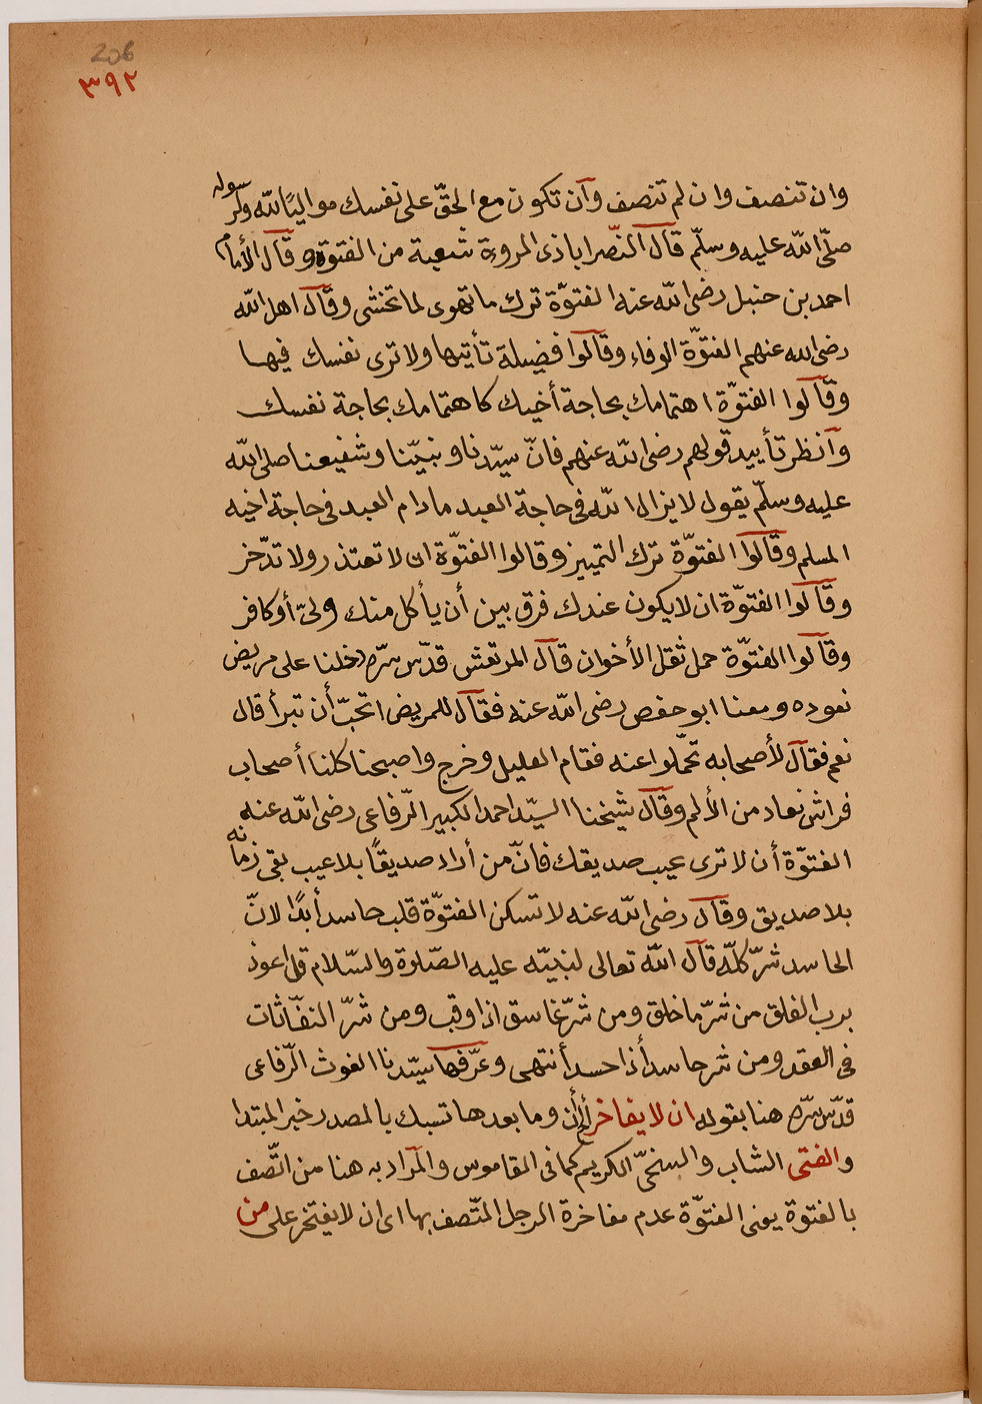 206
٣٩٢
وان تنصف وان لم تنصف وآن تكون مع الحقّ على نفسك مواليًا لله ولرسوله
صلّى الله عليه وسلّم قآل النّصرابادى المروءة شعبة من الفتوّة وقآل الأمام
احمد بن حنبل رضى الله عنه الفتوّة ترك ما تهوى لما تخشى وقآل اهل الله
رضى الله عنهم الفتوّة الوفاء وقآلوا فضيلة تأتيها ولا ترى نفسك فيها
وقآلوا الفتوّة اهتمامك بحاجة أخيك كاهتمامك بحاجة نفسك
وآنظر تأييد قولهم رضى الله عنهم فانّ سيّدنا ونبيّنا وشفيعنا صلى الله
عليه وسلّم يقول لا يزال الله فى حاجة العبد مادام العبد فى حاجة اخيه
المسلم وقآلوا الفتوّة ترك التمييز وقالوا الفتوّة ان لا تعتذر ولا تدّخر
وقآلوا الفتوّة ان لا يكون عندك فرق بين أن يأكل منك ولىّ أو كافر
وقآلوا الفتوّة حمل ثقل الأخوان قآل المرتعش قدّس سرّه دخلنا على مريض
نعوده ومعنا ابو حفص رضى الله عنه فقآل للمريض اتحبّ أن تبرأ قال
نعم فقآل لأصحابه تحمّلوا عنه فقام العليل وخرج واصبحنا كلنا أصحاب
فراش نعاد من الألم وقآل شيخنا السيّد احمد الكبير الرّفاعى رضى الله عنه
الفتوّة أن لا ترى عيب صديقك فانّ من أراد صديقًا بلا عيب بقى زمانه
بلا صديق وقآل رضى الله عنه لا تسكن الفتوّة قلب حاسد أبدًا لانّ
الحاسد شرّ كلّه قآل الله تعالى لنبيّه عليه الصّلوة والسّلام قل اعوذ
برب الفلق من شرّ ما خلق ومن شرّ غاسق اذا وقب ومن شرّ النفّاثات
فى العقد ومن شر حاسد أذا حسد أنتهى وعرّفها سيّدنا الغوث الرّفاعى
قدّس سرّه هنا بقوله ان لا يفاخر ألخ أن وما بعدها تسبك بالمصدر خبر المبتدا
والفتى الشاب والسخىّ الكريم كما فى القاموس والمرآد به هنا من اتّصف
بالفتوة يعنى الفتوّة عدم مفاخرة الرجل المتّصف بها اى ان لا يفتخر على من